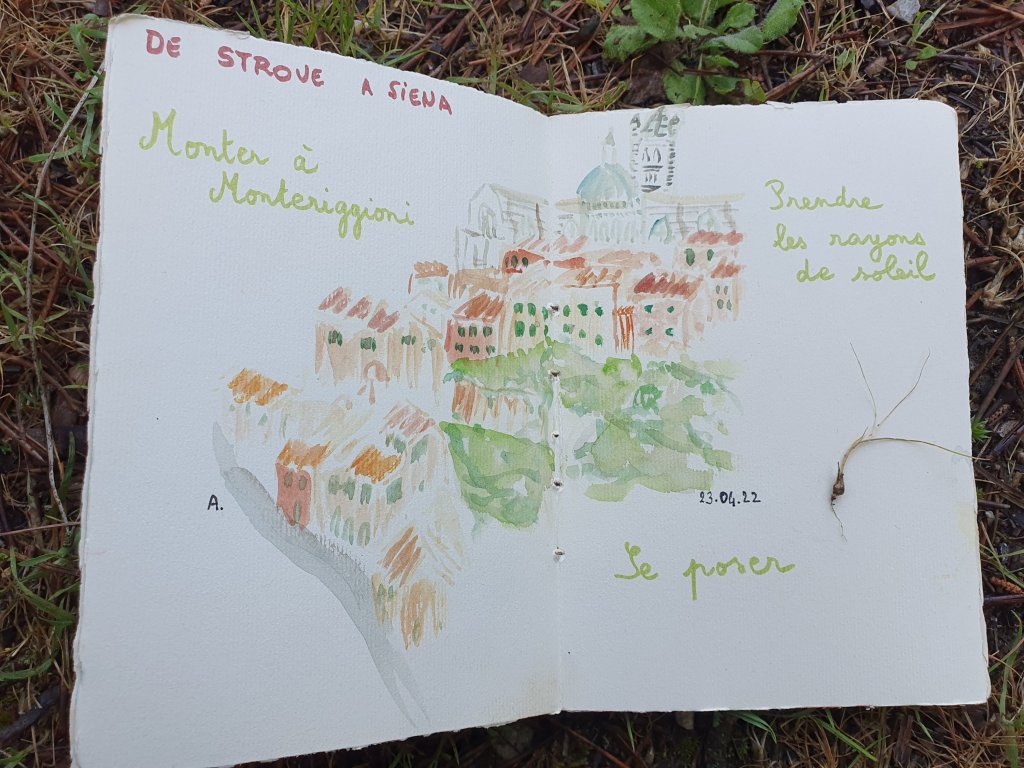 DE STROVE A SIENA
Monter à
Monteriggioni
A.
Prendre
les rayons
de soleil
23.04.22
Se poser